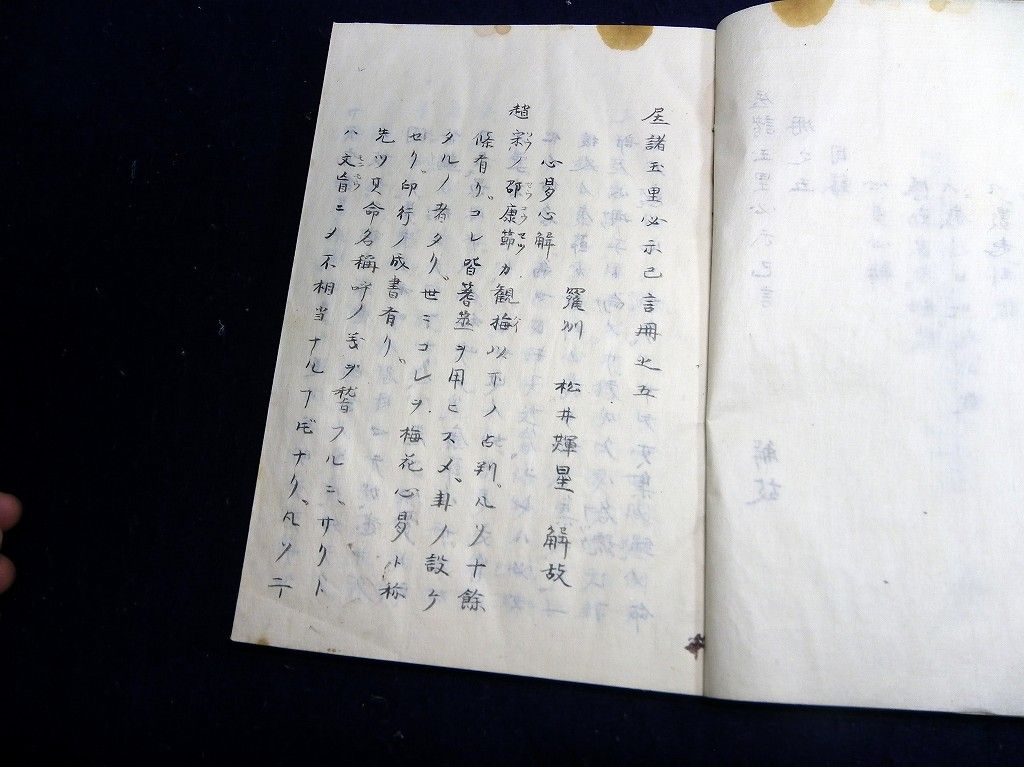 屋諸玉里必示己言冊之五
心易心解 羅州 松井輝星 解故
趙宋ノ邵康節カ観梅以下ノ占判凡ソ十餘
條有リコレ皆蓍莖ヲ用ヒスメ卦ノ設ケ
タルノ者タリ世ミコレヲ梅花心易ト称
セリ印行ノ成書有リ
先ツ其命名稱呼ノ義ヲ稽フルニサリト
ハ文盲ニメ不相当ナルヿナリ凡ソ